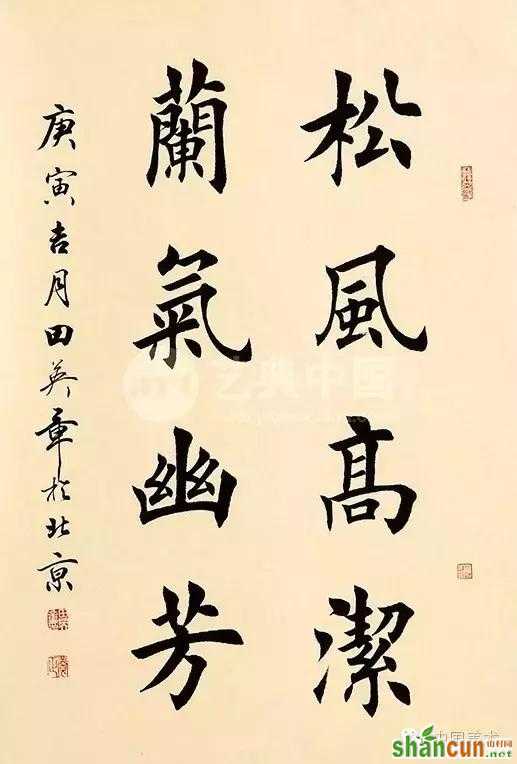 松風高潔
蘭氣幽芳
庚寅吉月田英章於北京
艺典中国
中国美术
shancun
山村网
.net